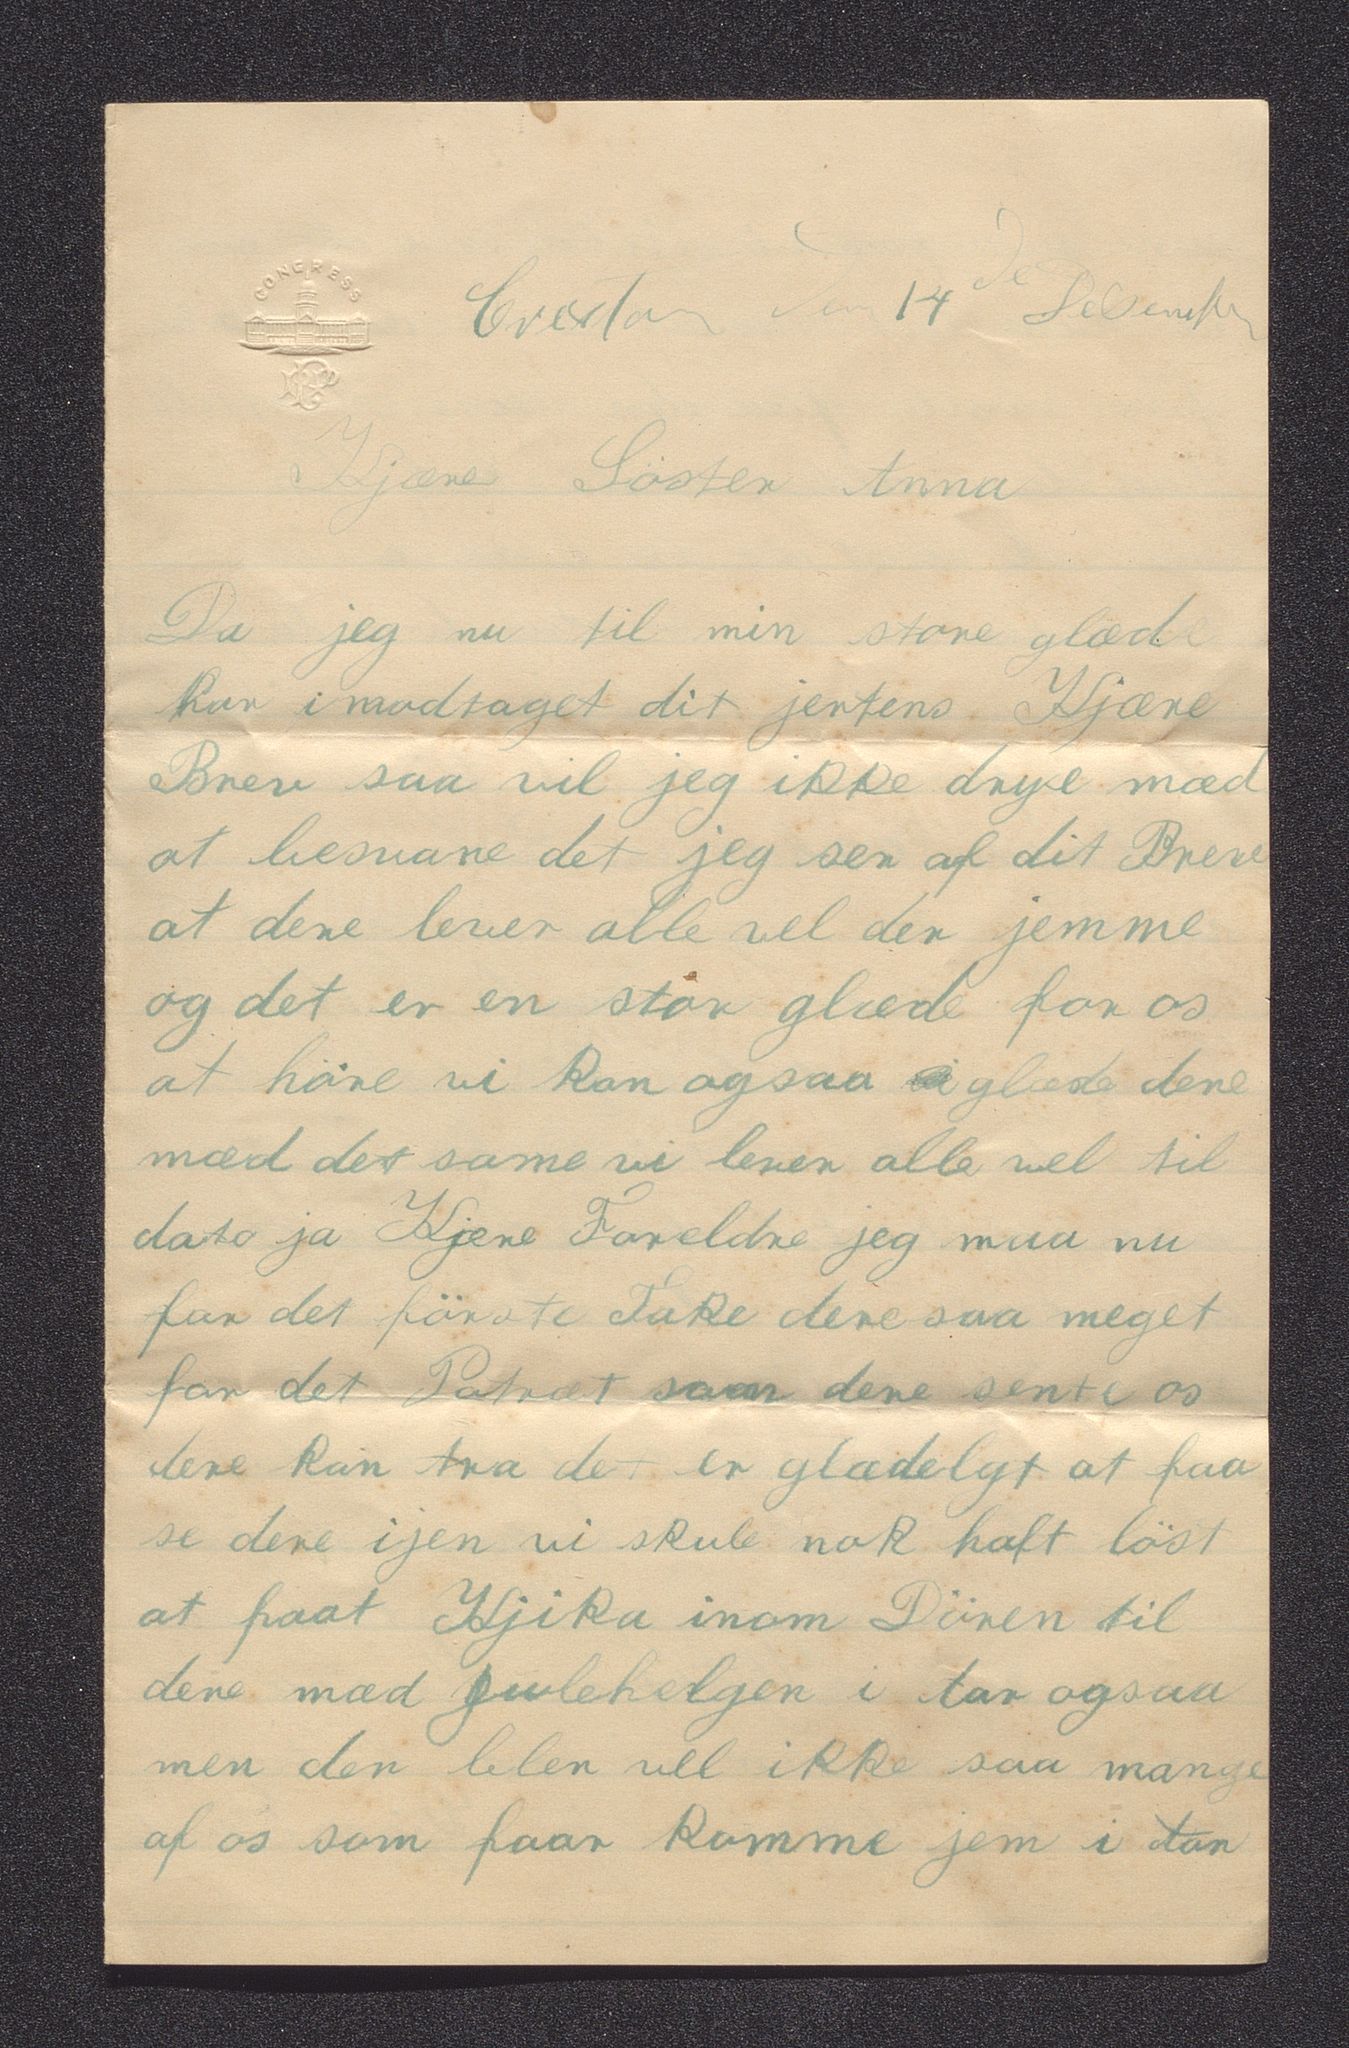 CONGRESS
Creston den 14de Desember
Kjære Söster Anna
Da jeg nu til min store glæde
har imodtaget dit jertens Kjære
Brev saa vil jeg ikke drye mæd
at besvare det jeg ser af dit Brev
at dere lever alle vel der jemme
og det er en stor glæde for os
at høre vi kan ogsaa glæde dere
mæd det same vi lever alle vel til
dato ja Kjere Foreldre jeg maa nu
for det förste Take dere saa meget
for det Potræt som dere sente os
dere kan tra det er glædelgt at faa
se dere ijen vi skule nok haft löst
at faat Kjika inom Dören til
dere mæd Julehelgen i tar ogsaa
men der bler vel ikke saa mange
af os som faar komme jem i tar